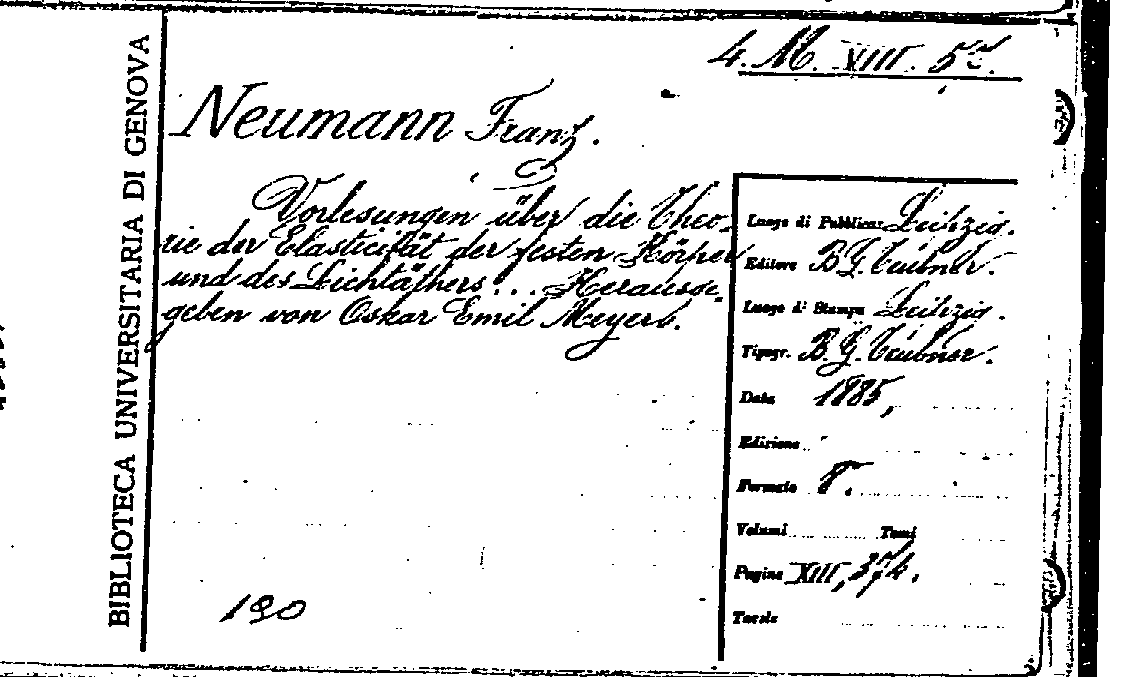 BIBLIOTECA UNIVERSITARIA DI GENOVA
4. M. XIII. 57.
Neumann Franz.
Vorlesungen über die Theo-
rie der Elasticität der festen Körper
und des Lichtäthers... Herausge-
geben von Oskar Emil Meyer.
Luogo di Pubblicaz. Leipzig.
Editore B. G. Teubner.
Luogo di Stampa Leipzig.
Tipogr. B. G. Teubner.
Data 1885,
Edizione
Formato 8°.
Volumi Tomi
Pagine XIII, 374.
Tavole
190